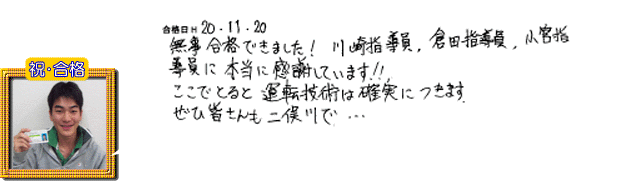 祝・合格
合格日H 20・11・20
無事合格できました! 川崎指導員,倉田指導員,小宮指
導員に本当に感謝しています!!
ここでとると運転技術は確実につきます
ぜひ皆さんも二俣川で…